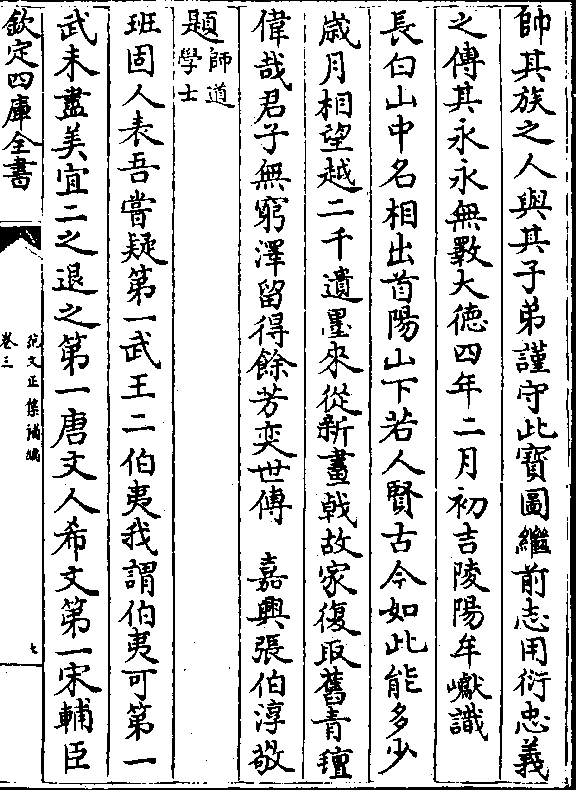 帥其族之人與其子弟謹守此寶圖繼前志用衍忠義
之傳其永永無斁大德四年二月初吉陵陽牟巘識
長白山中名相出首陽山下若人賢古今如此能多少
歳月相望越二千遺墨來從新畫戟故家復取舊青氊
偉哉君子無窮澤留得餘芳奕世傳　嘉興張伯淳敬
題師道
學士
班固人表吾嘗疑第一武王二伯夷我謂伯夷可第一
武未盡美宜二之退之第一唐文人希文第一宋輔臣
欽定四庫全書
范文正集補編
卷三
七